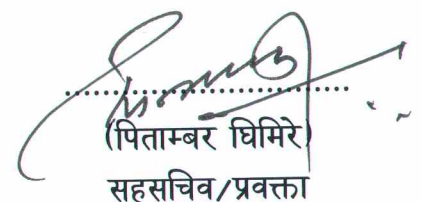 (पिताम्बर घिमिरे)
सहसचिव/प्रवक्ता